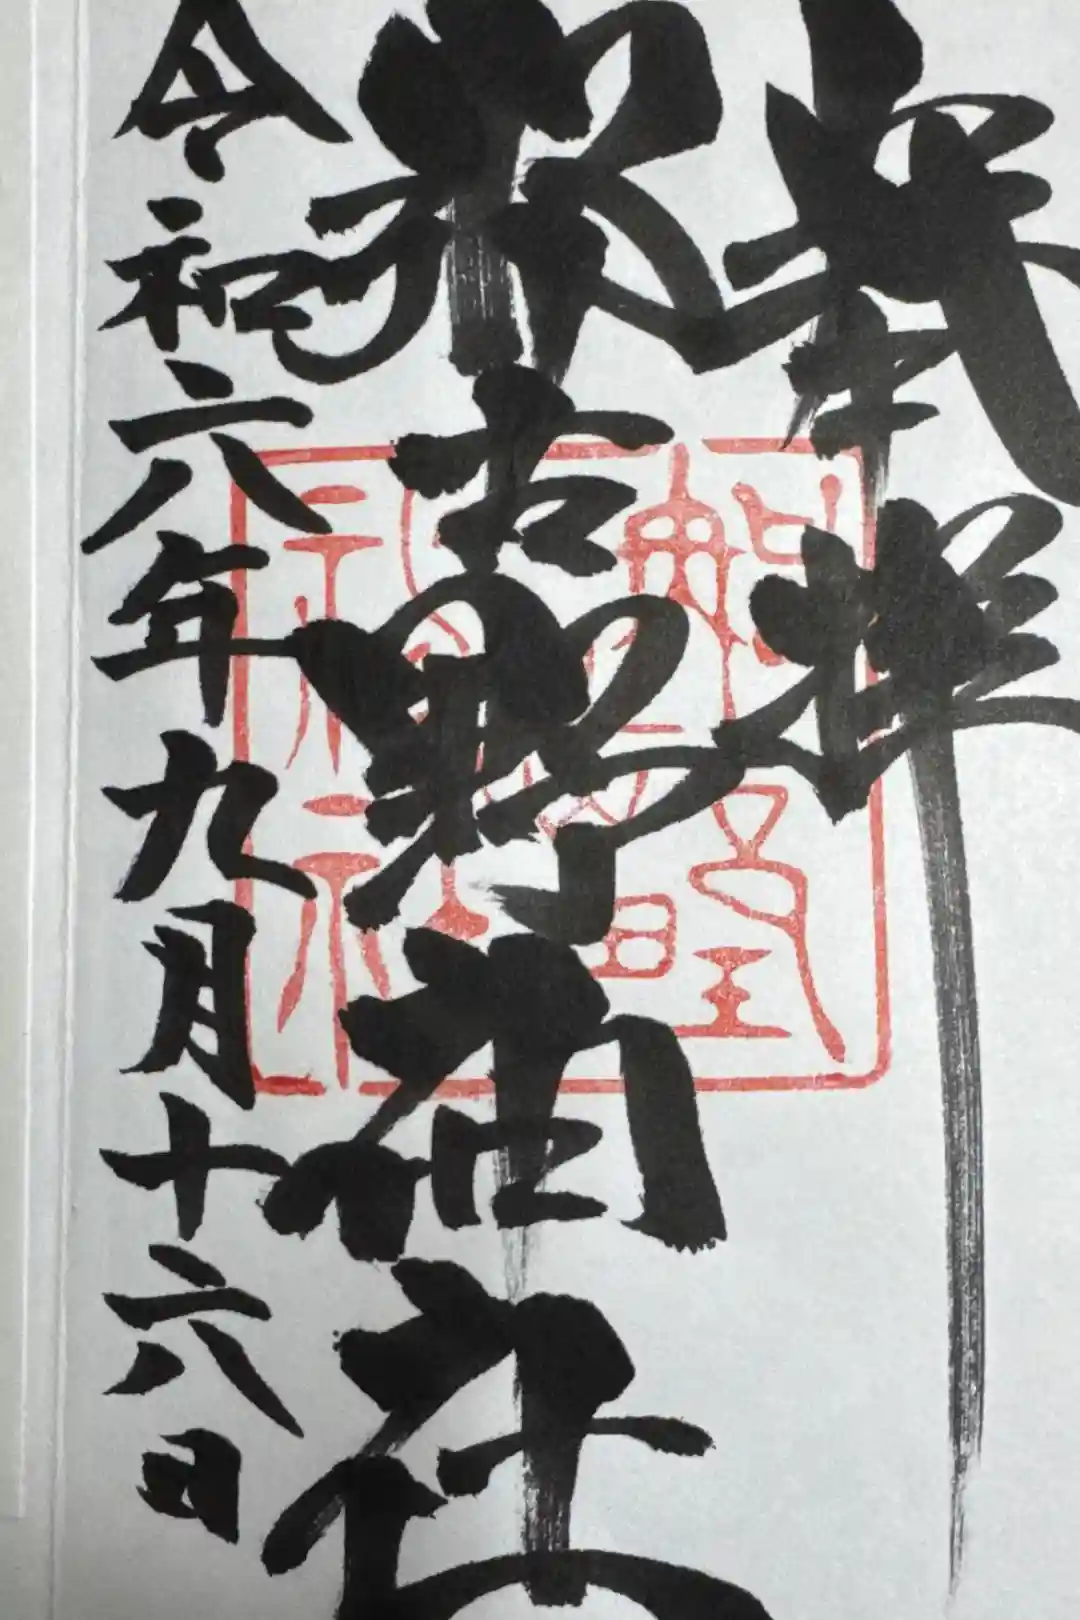 奉拝
那古野神社
令和六年九月十六日